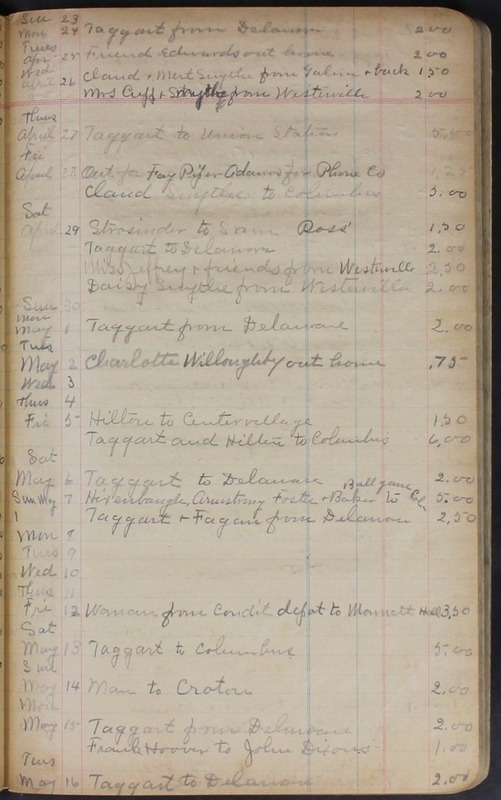 Sun 23
Mon 24 Taggart from Delaware 2 00
Tues
Apr 25 Friend Edwards out home 2 00
Wed Claud + Mert Smythe from Galena + back 1 50
April 26
Mrs Cuff + Smythe from Westerville 2 00
Thurs
April 27 Taggart to Union Station
Fri
April 28 Out for Fay Piper Adams for Phone Co 1,25
Claud Smythe to Columbus 5.00
Sat
April 29 Strosinder to Sam Ross' 1,50
Taggart to Delaware 2.00
+ friends from Westerville 2,50
Daisy Smythe from Westerville 2.00
Sun 30
Mon
May 1 Taggart from Delaware 2.00
Tues
May 2 Charlotte Willoughby out home .75
Wed 3
Thurs 4
Fri 5 Hilton to Centervillage 1,50
Taggart and Hilton to Columbus 6,00
Sat
May 6 Taggart to Delaware 2.00
Ball game
Sun May 7 Armstrong Foster + Baker to Col. 5.00
1 Taggart + Fagan from Delaware 2,50
Mon 8
Tues 9
Wed 10
Thurs 11
Fri 12 Woman from Condit depot to Monnett Hall 3,50
Sat
May 13 Taggart to Columbus 5.00
Sun
May 14 Man to Croton 2.00
Mon
May 15 Taggart from Delaware 2.00
Frank Hoover to John Dixons 1.00
Tues
May 16 Taggart to Delaware 2.00